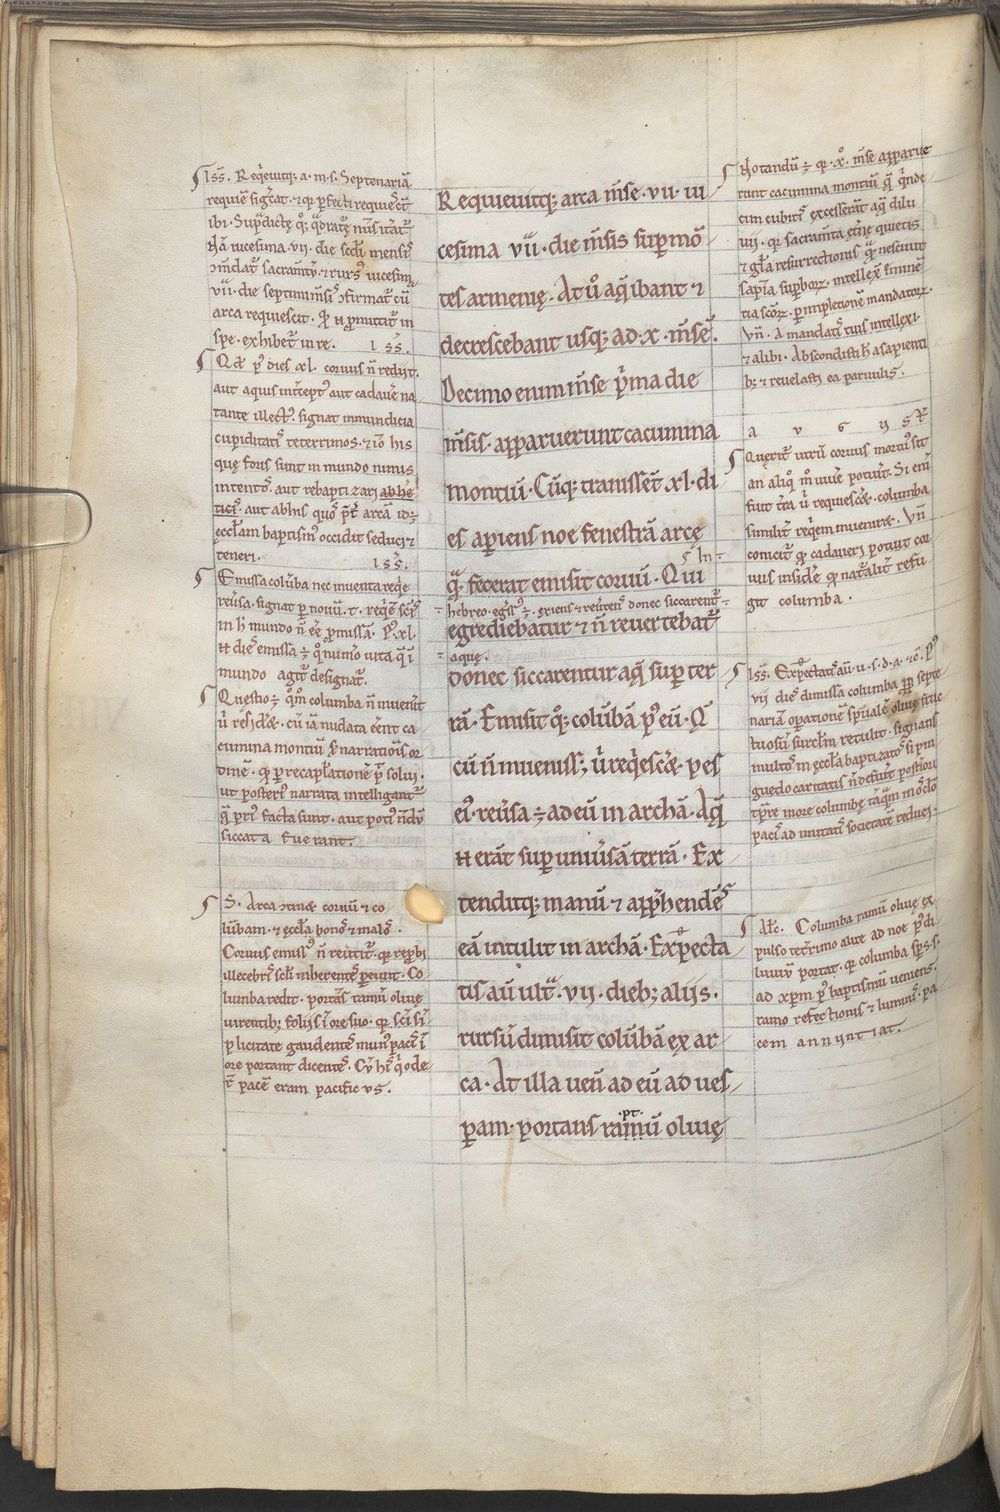 Iss̄. Reqͥeuitq; a. m. s. Septenariā
requiē sigͤcat. ⁊ qꝛ ꝑfecti requiesc̄t
ibi. Supͣdictę
uicesima. vıı. die scd̄i mensiſ
sacramtū. ⁊ rurs᾽ uicesim
vıı. die septimi m̄siſ ꝯfirmat᷑ cū
arca requiescit. Qꝛ ꝓmittit᷑ in
spe. exhibet᷑ in re. Iss̄.
Qd̄ ꝑ dies xl. coruus ñ redijt.
aut aquis int͛cept᾽ aut cadauēe na
tante illect᾽. signat inmundicia
cupiditatiſ teterrimos. ⁊ iō his
quę foris sunt in mundo nimis
intentoſ. aut rebaptizari ab hę
ticiſ. aut ab his quoſ p̄t͛ arcā id ÷
ęccłam baptism᾽ occidit seduci ⁊
teneri. Iss̄.
Emissa colūba nec inuenta reqͥe
reu͛sa. signat ꝑ nouū. t. reqͥē scīſ
in h̄ mundo ñ eē ꝓmissā. P᾽ xl.
diēſ emissa ÷ qͦ num͛o uita qͣ ī
mundo agit᷑ designat᷑.
Questio ÷ qͦm̊ columba ñ inuen͛it
ū resid͛&. cū iā nudata eēnt ca
cumina montiū. narrationiſ or
dinē. qꝛ ꝑ recapl̄ationē p̄t solui.
ut posteri᾽ narrata intelligant᷑
qͣ pri᾽ facta sunt. aut poti᾽ ñdū
siccata fuerant.
S. Arca ꝯtin& coruū ⁊ co
lūbam. ⁊ ęccła bonoſ ⁊ maloſ.
Coruus emiss᾽ ñ reu͛tit᷑. qꝛ reꝓbi
illecebriſ scl̄i inherenteſ ꝑeunt. Co
lumba redit. portanſ ramū oliuę
uirentib; folijſ ī ore suo. qꝛ scī sī
plicitate gaudenteſ mun᾽ paciſ ī
ore portant dicenteſ. Cū hiſ qͥ ode
r̄t pacē eram pacificus.
Requieuitq; arca m̄se. vıı. ui
cesima vıı. die m̄sis suꝑ mō
tes armenię. At ů aq̄ ibant ⁊
decrescebant usq; ad. x. m̄sē.
Decimo enim m̄se pͥma die
m̄sis. apparuerunt cacumina
montiū. Cūq; transissēt xl. di
es aꝑiens noe fenestrā arcę
ſ In
qͣ̄ fecerat emisit coruū. Qui
hebreo. egͥss᾽ ÷. exiens ⁊ reu͛tenſ donec siccarent᷑
egrediebatur ⁊ ñ reuertebat᷑
aquę.
donec siccarentur aq̄ suꝑ ter
rā. Emisit qͦ; colūbā p᾽ eū. Q̄
cū ñ inueniss; ů reqͥesc͛&. pes
ei᾽. reu͛sa ÷ ad eū in archā. Aq̄
erāt suꝑ uniu͛sā terrā. Ex
tenditq; manū ⁊ app̄hendēſ
eā intulit in archā. Exꝑecta
tis aū ult͛. vıı. dieb; alijs.
rursū dimisit colūbā ex ar
ca. At illa uen̄ ad eū ad ues
.pt.
ꝑam. portans ramū oliuę
Notandū ÷ qꝛ. xº. m̄se apparue
runt cacumina montiū
cim cubitiſ excesserāt aq̄ dilu
uij. qꝛ sacram̄ta quietis
⁊ gl̄a resurrectionis nesciuit
sapīa suꝑborꝝ. intellex͛
tia scōrꝝ. ꝑ impletionē mandatorꝝ.
Vn̄. A mandatiſ tuis intellexi.
⁊ alibi. Abscondisti h̄ a sapienti
b; ⁊ reuelasti ea paruulis.
a v g ıı st̄
Querit᷑ utrū coruus mortu᾽ sit
an aliqͦ m̊ uiuē potuit. Si em̄
fuit t͛ra ů requiesc͛&. columba
similit͛ reqͥem inueniret. Vn̄
conicit᷑ qꝛ cadaueri potuit cor
uus insid͛e. qꝛ nat᷑alit͛ refu
git columba.
Iss̄. Exꝑectatiſ aū. u. s. d. a. ⁊c̄. P᾽
vıı dieſ dimissa columba ꝓꝑ septe
nariā oꝑationē spūalē oliuę fruc
tuosū surcl̄m retulit. signanſ
multoſ in ęccła baptizatoſ si pin
guedo caritatis ñ defu͛it posteriori
tꝑre more columbę tāqͣm
paciſ ad unitatiſ societatē reduci.
Alc̄. Columba ramū oliuę ex
pulso tet͛rimo alite ad noe p᾽ di
luuiū portat. qꝛ columba sp̄s. s.
ad xp̄m p᾽ baptismū ueniens.
ramo refectionis ⁊ luminiſ. pa
cem annuntiat.